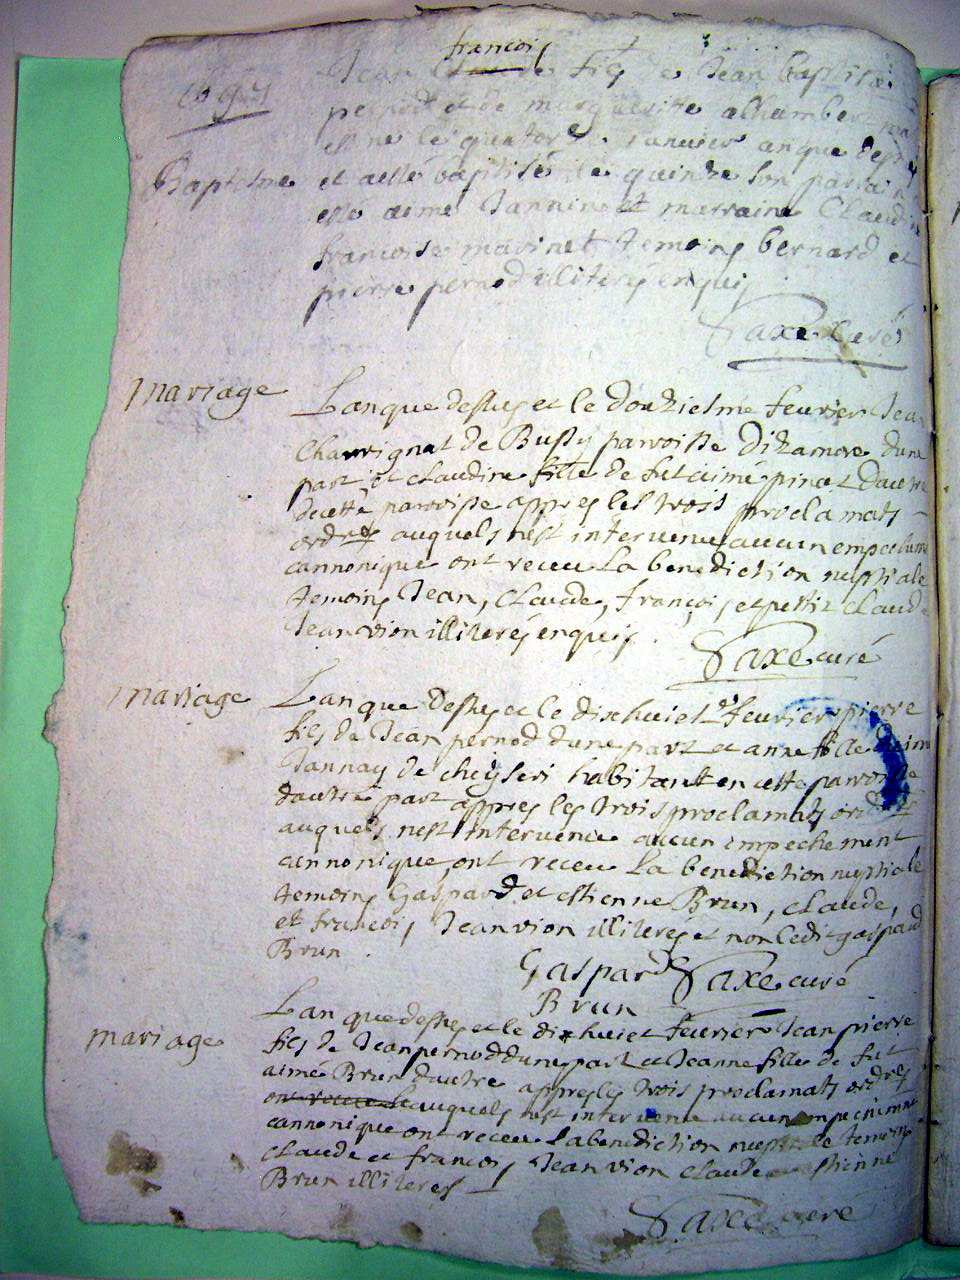 françois
Jean fils de Jean baptiste
pernod et de marguerite alhumbert
est né le quatorze janvier an que dessus
Baptesme
et a esté baptisé le quinze son parrain
esté aimé Jannin et marraine Claudine
françoise mavinet temoins bernard et
pierre pernod illiterés enquis
Saxe curé
Mariage
Lan que dessus et le douziesme feuvrier Jean
Chavvignat de Bussy parroisse Dizamore dune
part et claudine fille de fut aimé pinet dautre
decette parroisse appres les trois proclamats
ordres auquels nest intervenu aucun empechement
cannonique ont receu La benediction nuptiale
temoins Jean, Claude, françois, et petit claude
Jeanvion illiterés enquis.
Saxe curé
Mariage
Lan que dessus et le dixhuict feuvrier pierre
fils de Jean pernod dune part et anne fille
Jannay de cheyseri habitant en cette parroisse
dautre part appres les trois proclamats ordres
auquels nest intervenu aucun empechement
cannonique, ont receu La benediction nuptiale
temoins Gaspard et estienne Brun, claude,
et francois, Jeanvion illiterés et non ledit gaspard
Brun.
Gaspard Saxe curé
Brun
mariage
Lan que dessus et le dixhuict feuvrier Jean pierre
fils de Jean pernod dune part et Jeanne fille de fut
aimé Brun dautre appres les trois proclamats ordres
ont receu La auquels nest intervenu aucun empechement
cannonique ont receu La benediction nuptiale temoins
claude et francois Jeanvion claude estienne
Brun illiteres
Saxe curé